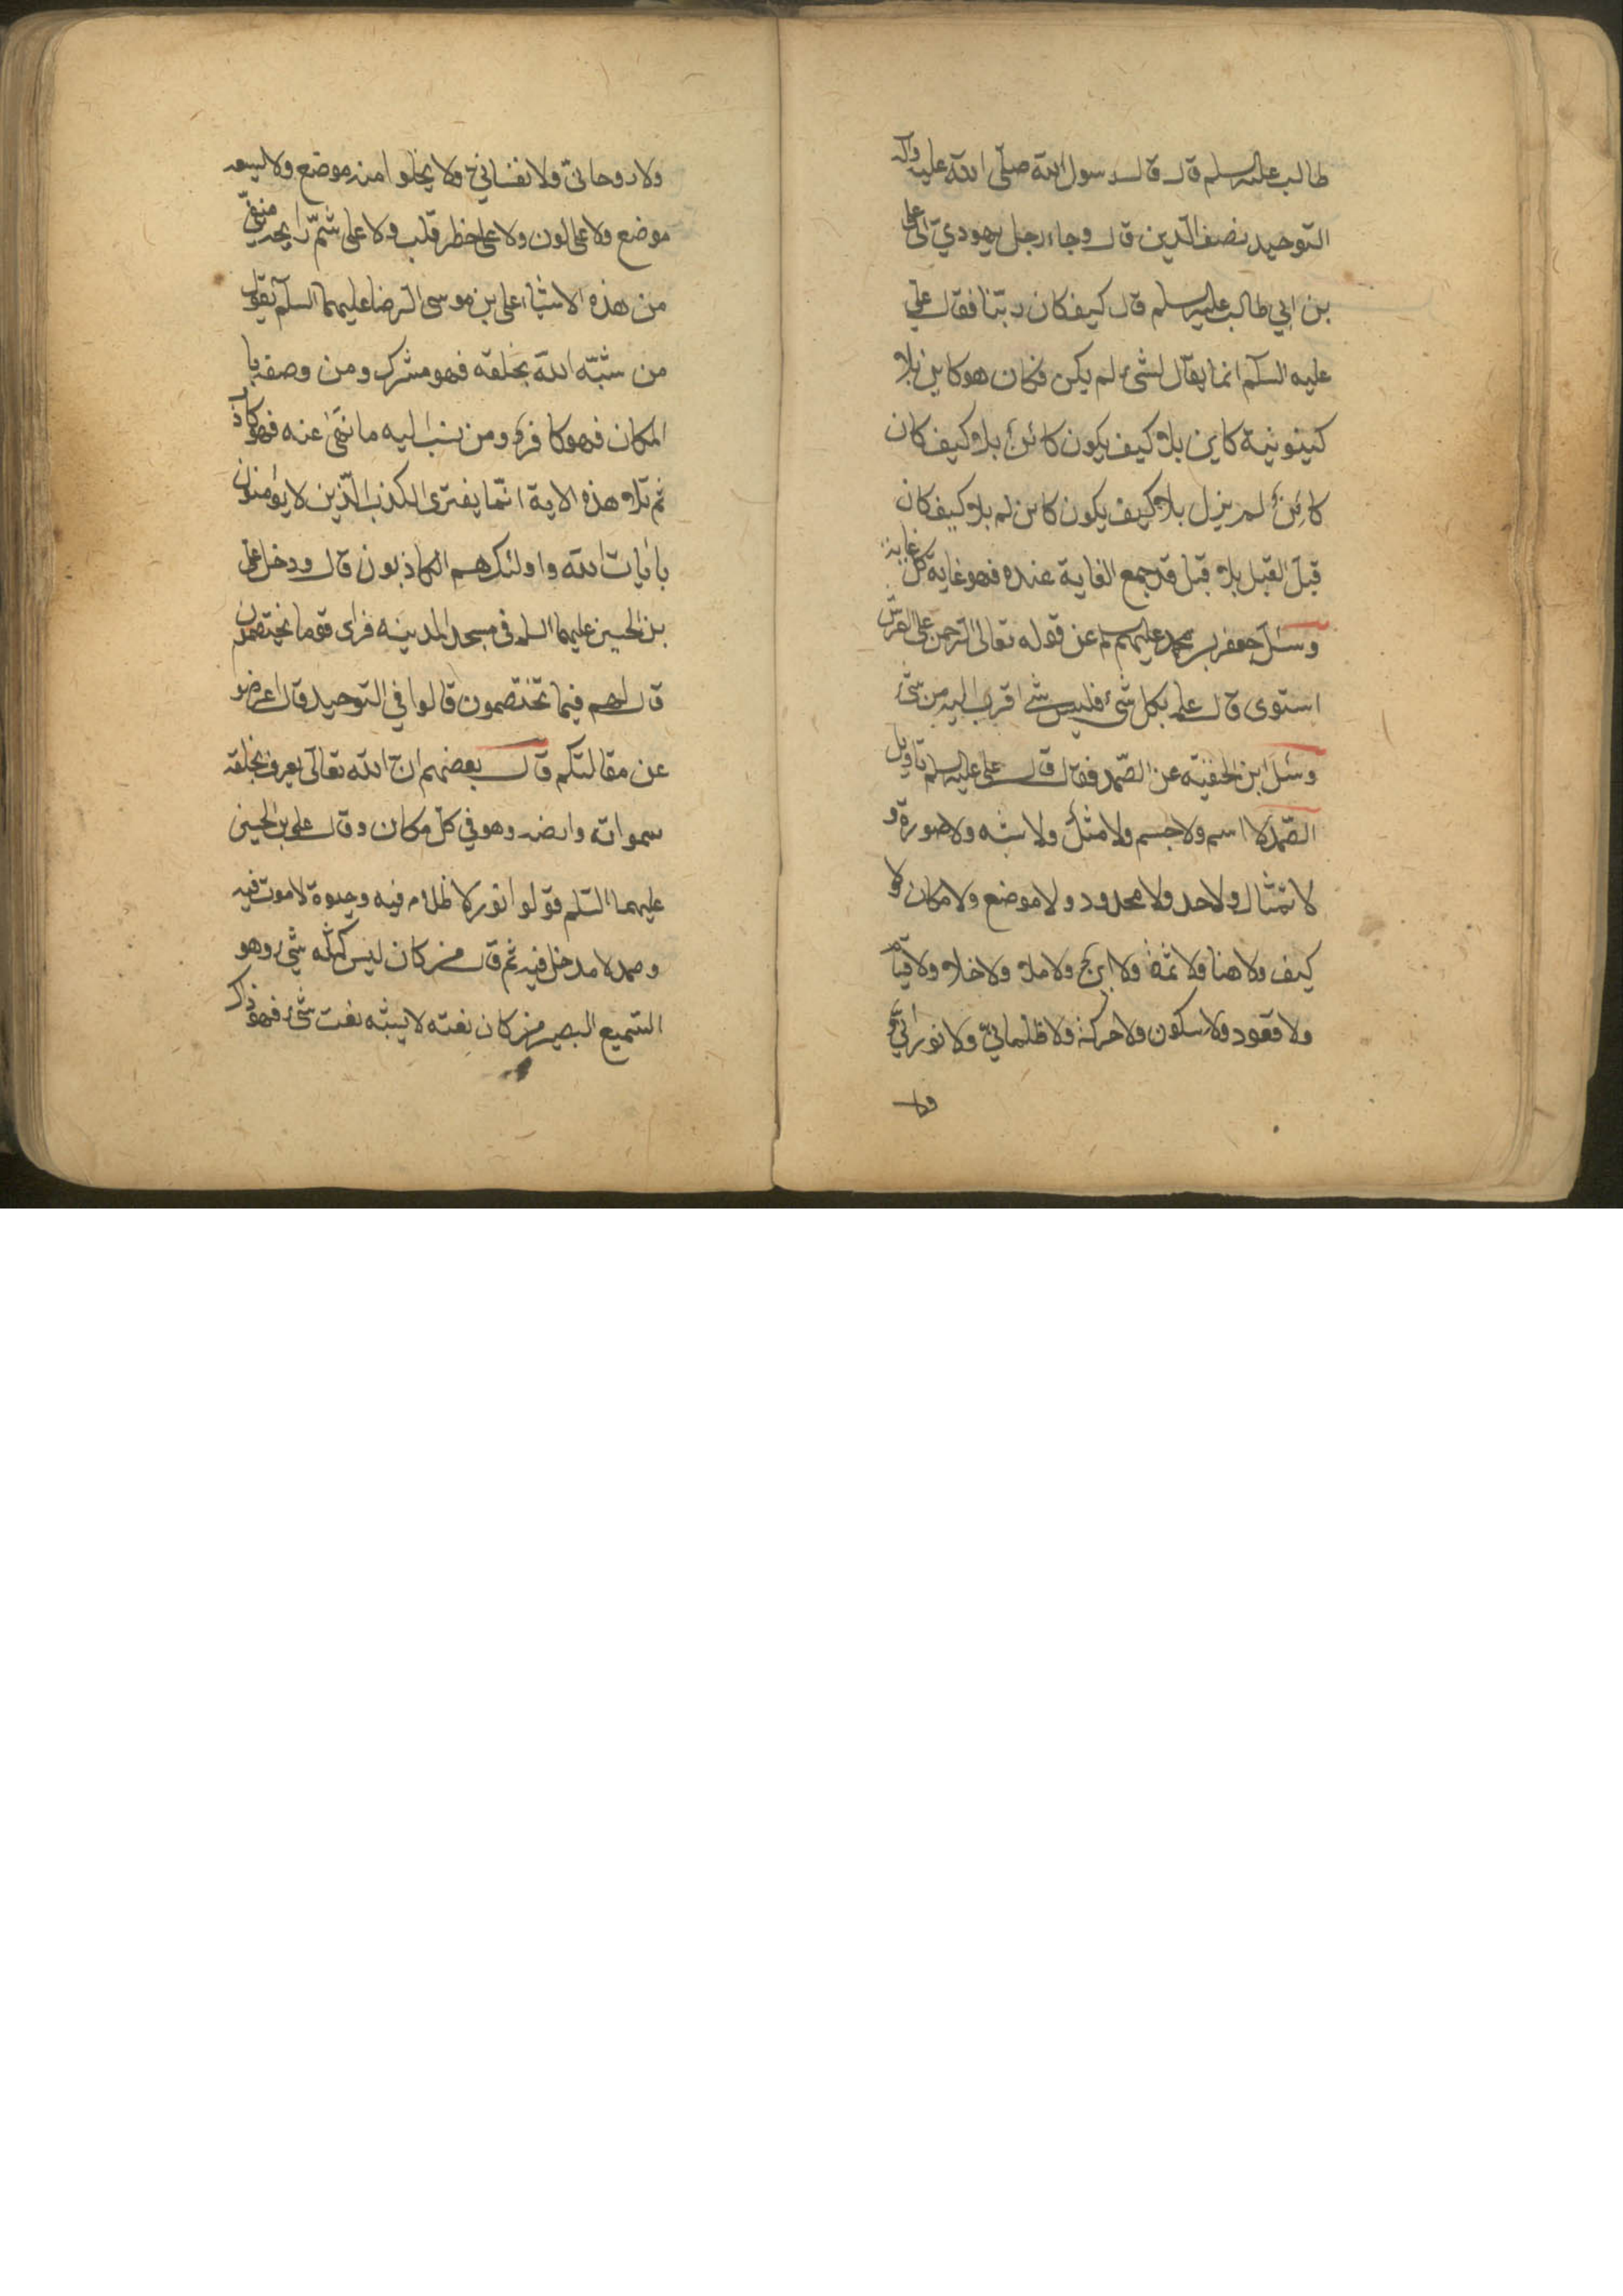 طالب عليه سلم قال قال رسول الله صلّى الله عليه وآله
التوحيد نصف الدين قال وجاء رجل يهوديّ الى على
بن ابي طالب عليه سلم قال كيف كان ربّنا فقال علي
عليه السلم انما يقال لشىء لم يكن فكان هو كاين بلا
كينونية كاين بلا كيف يكون كائن بلا كيف كان
كائن لم يزل بلا كيف يكون كاين لم بلا كيف كان
قبل القبل بلا قبل قد جمع الغاية عنده فهو غاية كل غاية
وسئل جعفر بن محمد عليهم سلم عن قوله تعالى الرحمن على العرش
استوى قال علم بكل شىء فليس شىء اقرب اليه من شىء
وسئل ابن الحنفيّه عن الصّمد فقال قال على عليه سلم تاويل
الصّمد لا اسم ولا جسم ولا مثل ولا شبه ولا صورة و
لا تمثال ولا حد ولا محدود ولا موضع ولا مكان ولا
كيف ولا هنا ولا ثمة ولا اين ولا ملا ولا خلا ولا قيام
ولا قعود ولا سكون ولا حركة ولا ظلمانيّ ولا نورانيّ و
ولا
ولا روحانى ولا نفسانيّ ولا يخلوا منه موضع ولا يسعه
موضع ولا على لون ولا على خطر قلب ولا على شمّ رايحه منفىّ
من هذه الاشياء على بن موسى الرضا عليهما السلم يقول
من شبّه الله بخلقه فهو مشرك ومن وصفه با
المكان فهو كافر ومن نسب اليه ما نهى عنه فهو كاذ
ثم تلا هذه الاية انّما يفترى الكذب الّذين لا يؤمنون
بايات الله واولئك هم الكاذبون قال ودخل على
بن الحسين عليهما السلم فى مسجد المدينه فراى قوما يختصمون
قال لهم فيما تختصمون قالوا في التوحيد قال اعرضو
عن مقالتكم قال بعضهم ان الله تعالى يعرف بخلقه
سمواته وارضه وهو في كلّ مكان وقال على بن الحسين
عليهما السّلم قولوا نور لا ظلام فيه وحيوة لا موت فيه
وصمد لا مدخل فيه ثم قال من كان ليس كمثله شىء وهو
السّميع البصير من كان نعته لا يشبه نعت شىء فهو ذاك